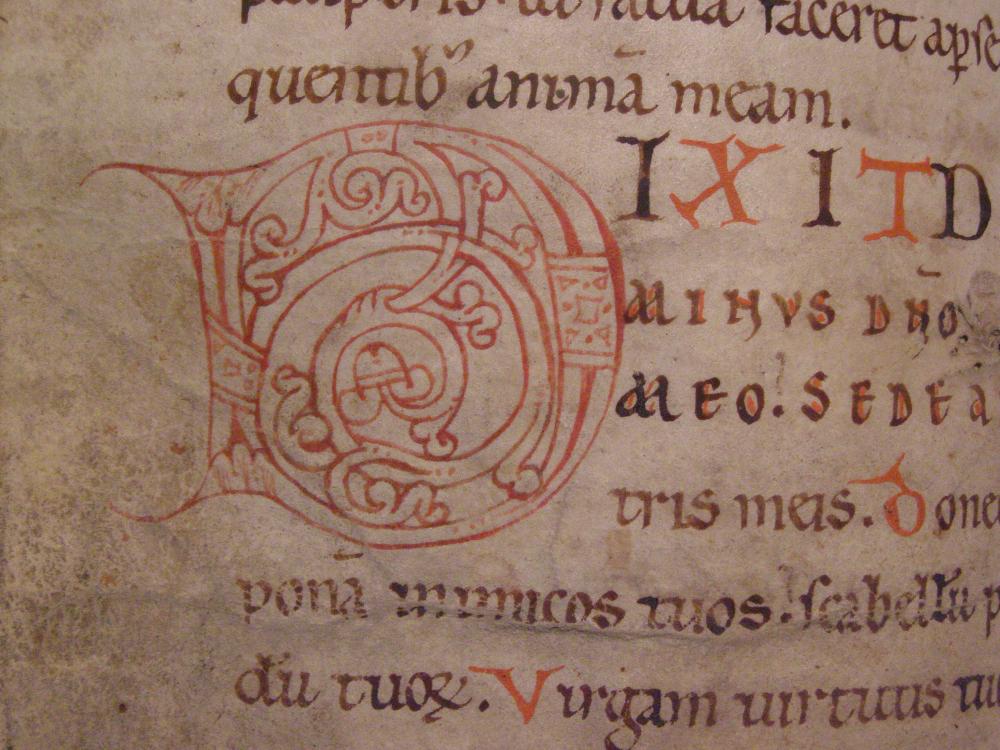 ut salua faceret a ꝑse
quentibꝰ animā meam.
DIXIT D
MINUS DÑO
MEO. SEDE A
tris meis. Done
ponā inimicos tuos. scabellū p
dū tuoꝝ. Virgam uirtutis tu